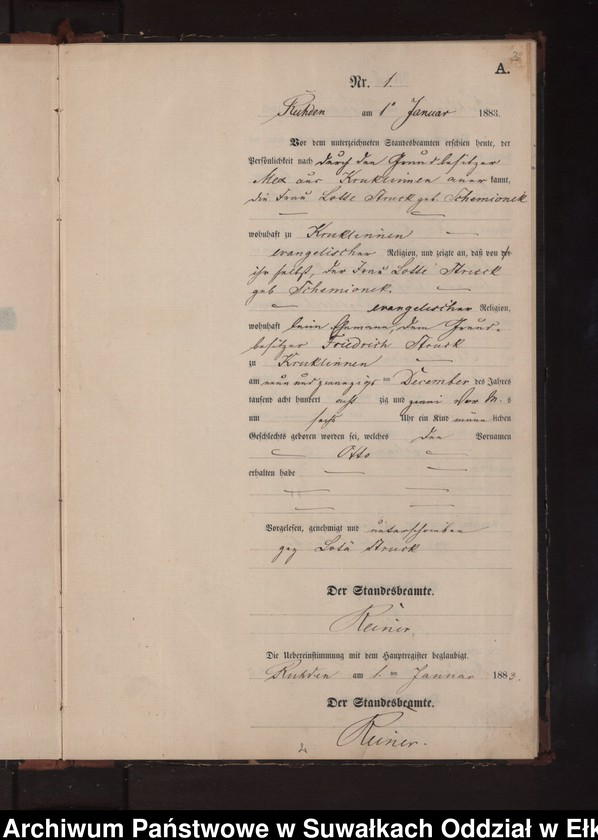 A.
Nr. 1.
Ruhden am 1ten Januar 1883.
Vor dem unterzeichneten Standesbeamten erschien heute, der
Persönlichkeit nach durch den Grundbesitzer
aus Kruklinnen aner kannt,
die Frau Lotte Struck geb. Schemionek
wohnhaft zu Kruklinnen
evangelischer Religion, und zeigte an, daß von
ihr selbst, der Frau Lotte Struck
geb Schemionek.
evangelischer Religion,
wohnhaft beim Ehemann, dem Grund-
besitzer Friedrich Struck
zu Kruklinnen
am neun und zwanzigs ten December des Jahres
tausend acht hundert acht zig und zwei Vor M. s
um sechs Uhr ein Kind männ lichen
Geschlechts geboren worden sei, welches den Vornamen
Otto
erhalten habe
Vorgelesen, genehmigt und unterschrieben
gez Struck
Der Standesbeamte.
Reiner.
Die Uebereinstimmung mit dem Hauptregister beglaubigt.
Ruhden am 1. ten Januar 1883.
Der Standesbeamte.
Reiner.
Archiwum Państwowe w Suwałkach Oddział w Ełk